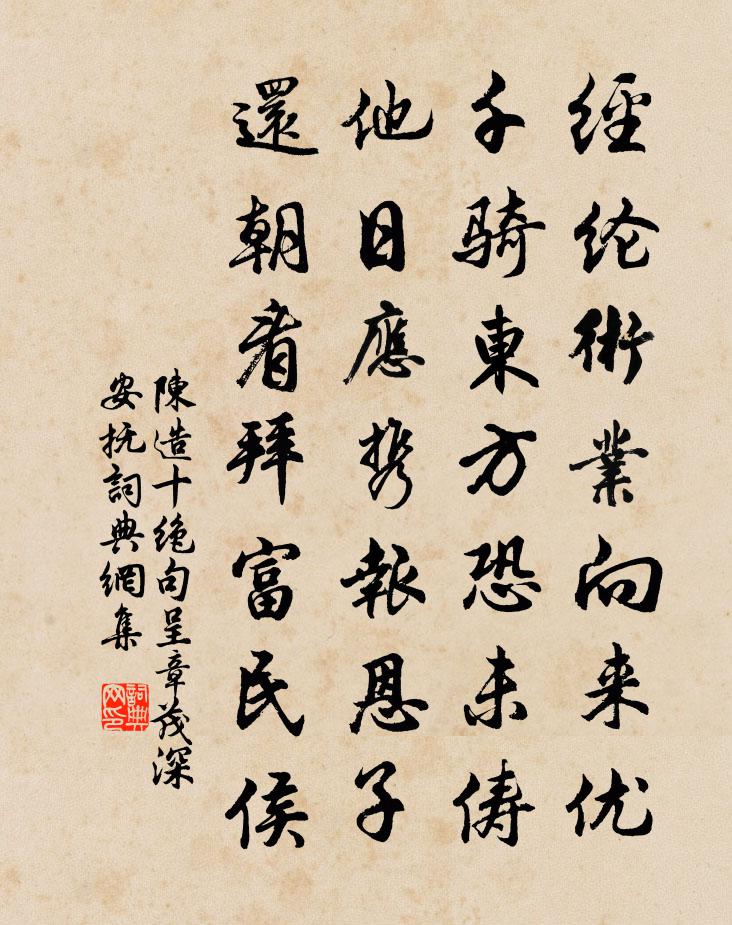 經纶術業向来优
千骑東方恐未俦
他日應携報恩子
還朝看拜富民侯
陳造十绝句呈章茂深
安抚詞典網集
詞典网印